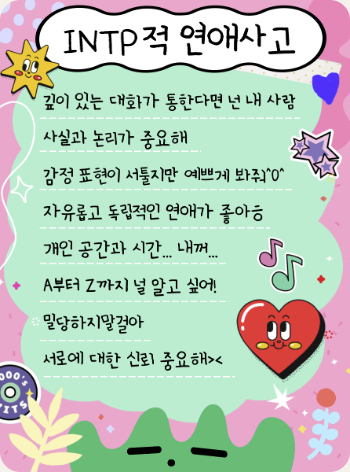 INTP적 연애사고
깊이 있는 대화가 통한다면 넌 내 사람
사실과 논리가 중요해
감정 표현이 서툴지만 예쁘게 봐줘^0^
자유롭고 독립적인 연애가 좋아ㅎ
개인 공간과 시간... 내꺼...
A부터 Z까지 널 알고 싶어!
밀당하지말걸아
서로에 대한 신뢰 중요해><